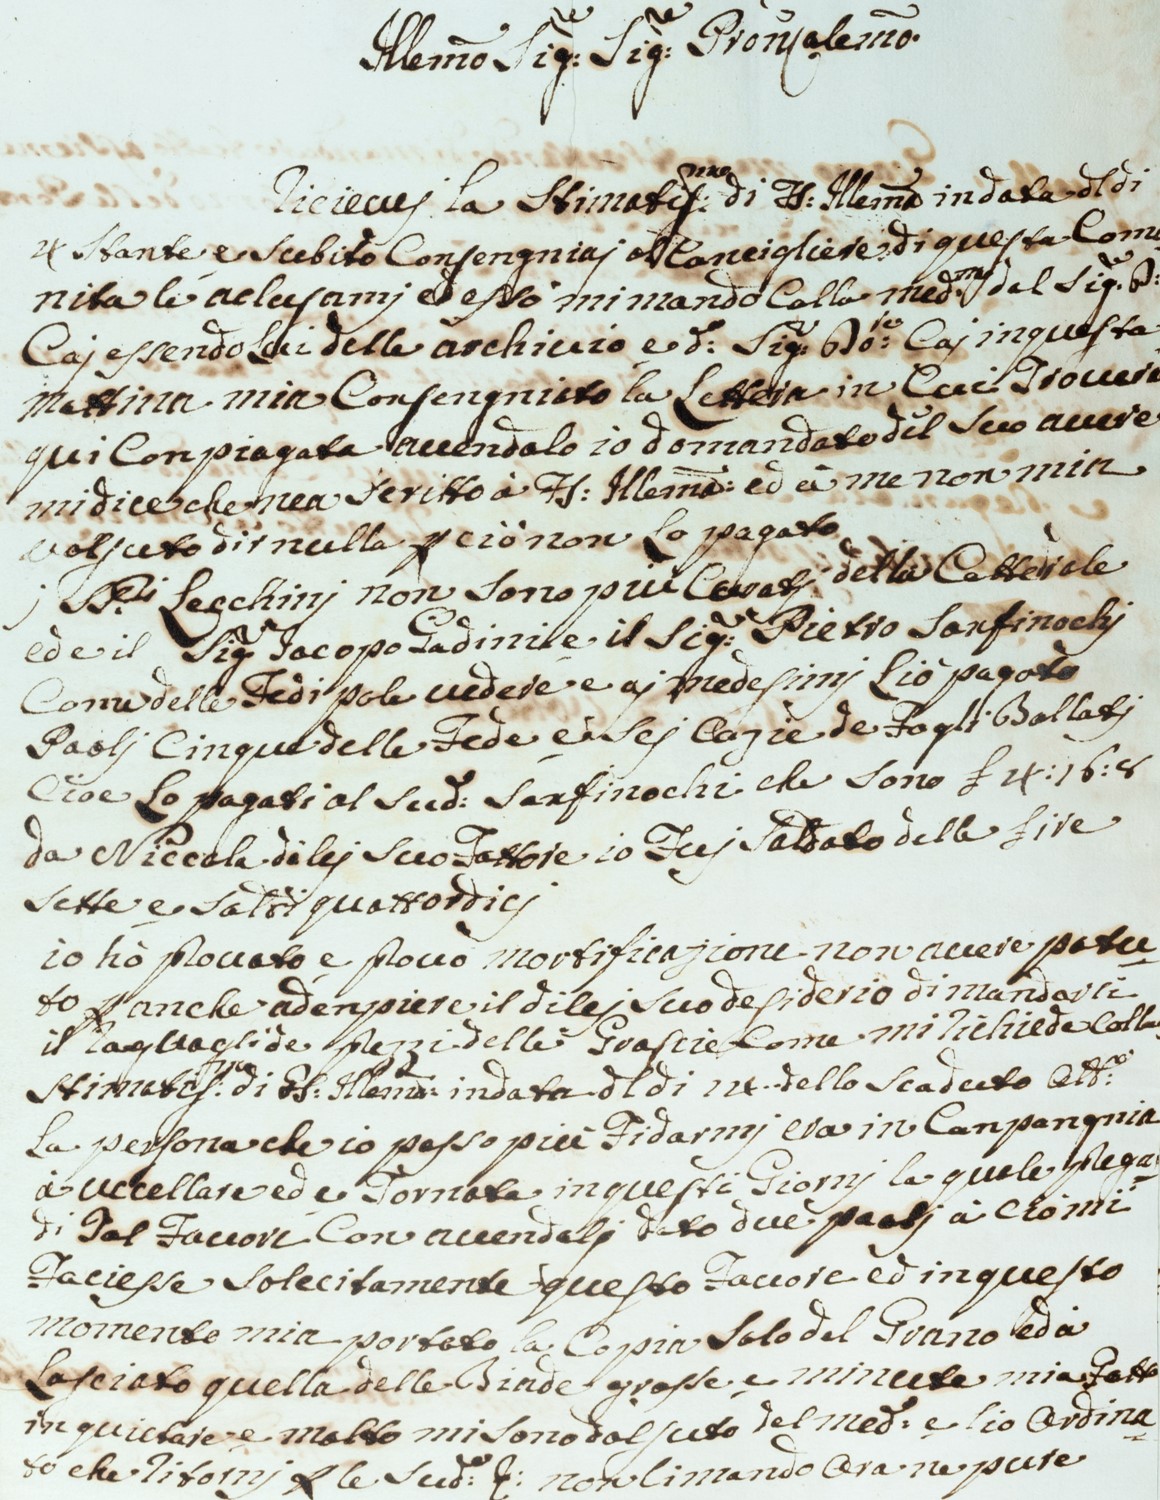 Illemo Sigre: Sigre: Pron: Colemo.
Riceuej la Stimatissma: di VS: Illema in data dl di
4 Stante e Subito Consengniaj al Canciglieredi questa Comu
nita le acluse mj ed esso mi mando Colla medma dal Sigre: Dre:
Caj essendo Lui delle archiuio e d: Sigre: Dore: Caj in questa
mattina mia Consengniato la Lettera in Cui Trouera
qui Conpiagata auendalo io domandato del Suo auere
mi dice che nea Scritto à VS: Illema: ed à me non mia
uolsuto dir nulla p ciò non Lo pagato
j SSri Lecchinj non sono più Curatj della Cattedrale
ed e il Sigre Jacopo Gadini e il Sigre: Pietro Sanfinochj
Come delle Fedi pole uedere e aj medesimj Liò pagato
Paolj Cinque delle Fede e à Sej Cazie de Fogli Bollatj
Cioe Lo pagati al Sudo: Sanfinochi che sono £ 4: 16: 8
da Niccola di lej Suo Fattore io Fuj Saldato delle Lire
sette e Saldi quattordicj
io hò prouato e prouo mortificazione non auere potu
to p anche adenpiere il di lej Suo desiderio di mandarli
il Raguagli de prezzi delle Grascie Come mi Richiede Colla
Stimatissma: di VS: Illema: in data dl di 14. dello Scaduto Otte:
La persona che io posso più Fidarmj era in Canpangnia
à uccellare ed e Tornata in questi Giornj la quale prega
di Tal Fauore Con auendalj dato due paolj à Ciò mi
Faciesse Solecitamente questo Fauore ed in questo
momento mia portato la Copia Solo del Grano ed à
Lasciato quella delle Biade grosse e minute mia Fatto
inquietare e molto mi sono dolsuto del medo: e liò Ordina
to che Ritornj p le Sude: e: non li mando Ora ne pure